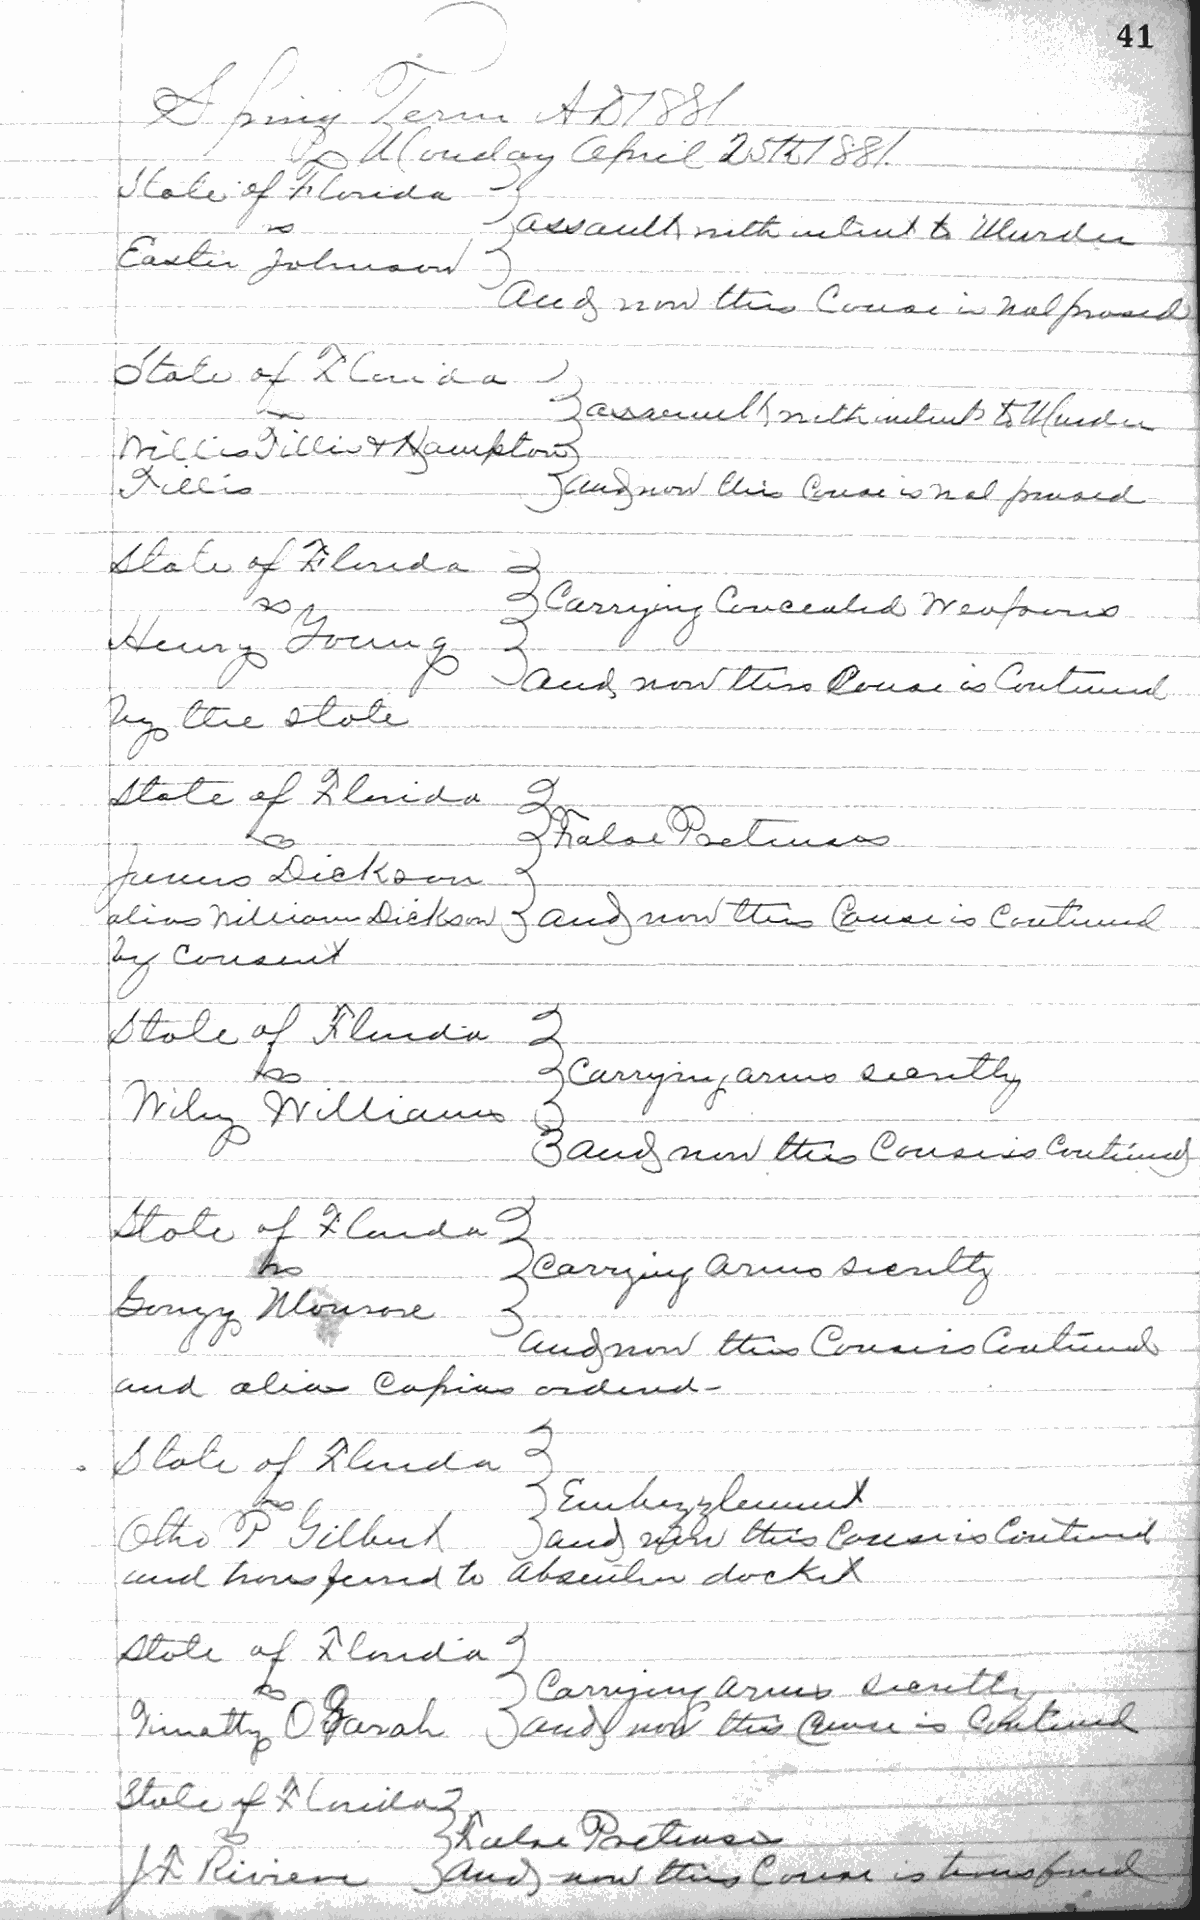 41
Spring Term AD 1881
Monday April 25th 1881
State of Florida
vs
assault with intent to Murder
Easter Johnson
and now this Cause is nol prosed
State of Florida
vs
assault with intent to Murder
Willis Tillis & Hampton
Tillis
and now this Cause is nol prosed
State of Florida
vs
Carrying Concealed Weapons
Henry Young
and now this Cause is Continued
by the state
State of Florida
vs
False Pretenses
Junius Dickson
alias William Dickson and now this Cause is Continued
by Consent
State of Florida
vs
Carrying arms secretly
Wiley Williams
and now this Cause is Continued
State of Florida
vs
Carrying arms secretly
Monroe
and now this Cause is Continued
and alias Capias ordered-
State of Florida
vs
Embezzlement
Otho P Gilbert and now this Cause is Continued
and transferred to absentee docket
State of Florida
vs
Carrying arms secretly
Timothy O and now this Cause is Continued
State of Florida
vs
False Pretenses
J F Riviere and now this Cause is transfered